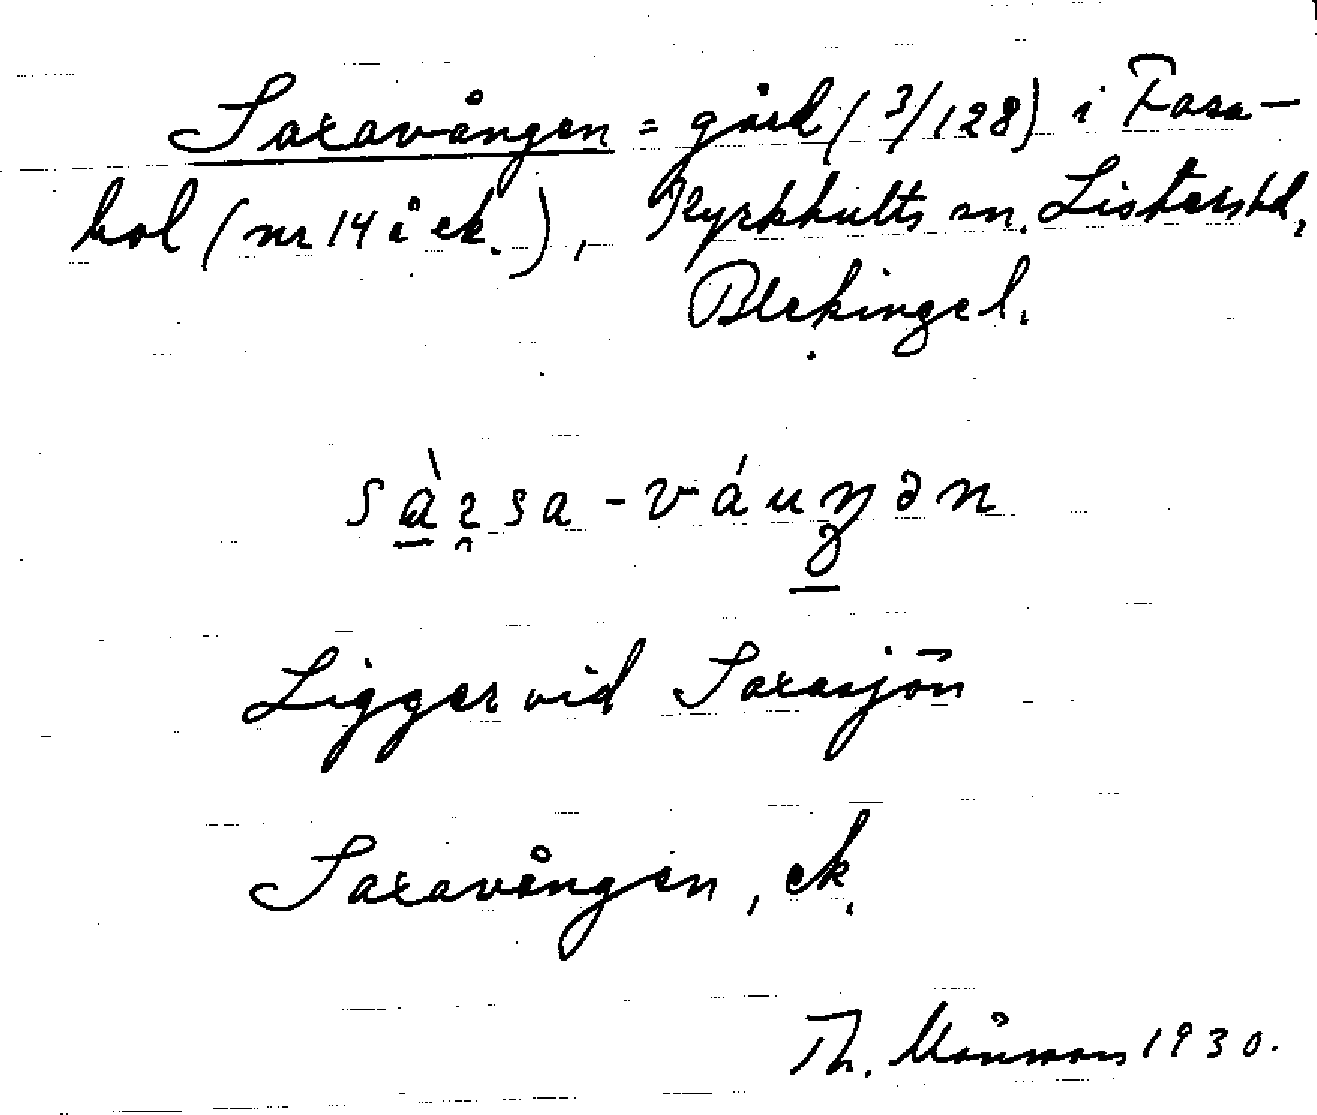 Saxavången = gård (3/128) i Fara-
bol (nr 14 i ek.), Kyrkhults sn. Listershd,
Blekingel.
Ligger vid Saxasjön
Saxavången, ek.
Th. Månsson 1930.